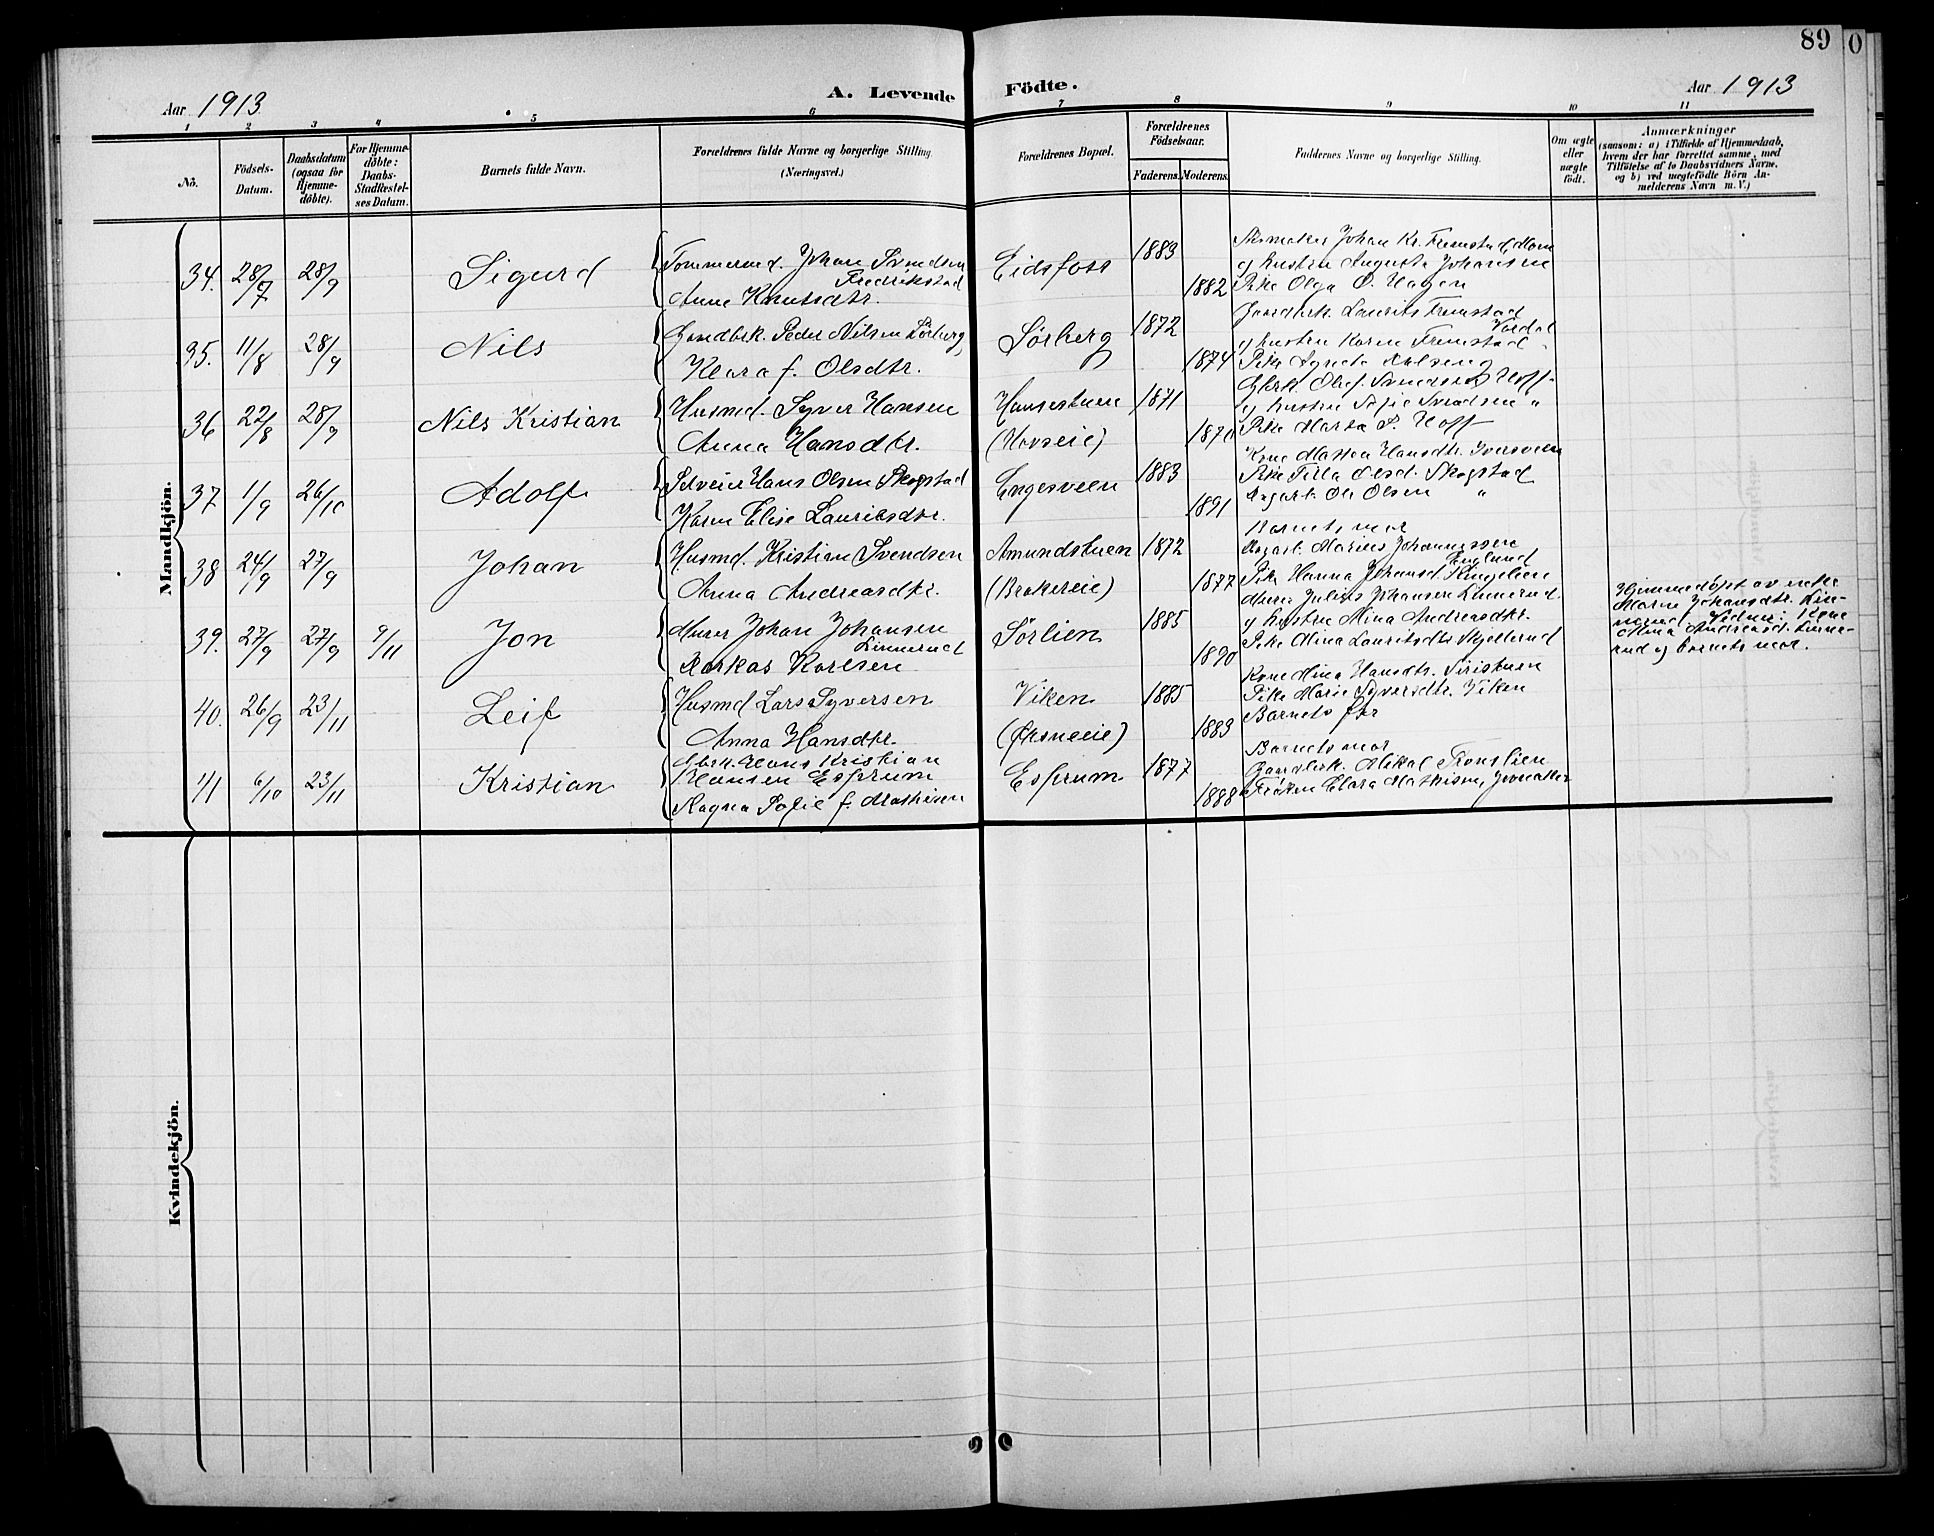 89
0
Aar 1913
A. Levende
Födte.
Aar 1913
1 2 3 4 5 6 7 8 9 10 11
Nô.
Födsels-Datum.
Daabsdatum (ogsaa for Hjemme-döbte).
For Hjemme-döbte: Daabs-Stadfæstel-ses Datum.
Barnets fulde Navn.
Forældrenes fulde Navne og borgerlige Stilling.
(Næringsvei.)
Forældrenes Bopæl.
Forældrenes Födselsaar.
Faderens. Moderens.
Faddernes Navne og borgerlige Stilling.
Om ægte eller uægte födt.
Anmærkninger
(saasom: a) i Tilfælde af Hjemmedaab,
hvem der har forrettet samme, med
Tilföielse af to Daabsvidners Navne.
og b) ved uægtefödte Börn An-
melderens Navn m. V.)
Mandkjön.
34. 28/7 28/9 Sigurd
Johan Svendsen
Fredrikstad
Anne Knutsdtr.
Eidsfoss 1883 1882
Johan Kr. Fremstad
og hustru Augusta Johansen
Pike Olga O. Hagen
35. 11/8 28/9 Nils
Gaardbrk. Peder Nilsen Sörberg
Klara f. Olsdtr.
Sörberg 1872 1874
Gaardbrk. Laurits Fremstad
og hustru Karen Fremstad
Pike Agnete
36 22/8 28/9 Nils Kristian
Husmd. Syver Hansen
Anna Hansdtr.
Hansestuen
(Hovseie)
1871
Olaf Svendsen Hoff
og hustru Sofie Svendsen "
Pike Marta P. Hoff
37 1/9 26/10 Adolf
Selveier Hans Olsen Skogstad
Karen Elise Lauritsdtr.
Engesveen 1883 1891
Kone Hansdtr.
Pike Olsd. Skogstad
Ungart. Ole Olsen "
38 24/9 27/9 Johan
Husmd. Kristian Svendsen
Anna Andreasdtr.
Amundstuen
(Brakereie)
1872 1877
Barnets mor
Ungart. Marius Johannessen
Englund
Pike Hanna Johansd.
39. 27/9 27/9 9/11 Jon
Murer Johan Johansen
Linnerud
Karlsen
Sörlien 1885 1890
Murer Julius Johansen Linnerud
og hustru Mina Andreasdtr.
Pike Mina Lauritsdtr. Skjellerud
Hjemmedöpt av enke
Marie Johansdtr. Lin-
nerud. Vidner: Kone
Mina Andreasd. Linne-
rud og barnets mor.
40. 26/9 23/11 Leif
Husmd Lars Syversen
Anna Hansdtr.
Viken
(Öksneeie)
1885 1883
Kone Mina Hansdtr.
Pike Marie Syversdtr. Viken
Barnets far
41 6/10 23/11 Kristian
Gbrk. Hans Kristian
Hansen Esperum
Ragna Sofie f. Mathisen
Esperum 1877 1888
Barnets mor
Gaardbrk. Mikal Fronslien
Fröken Clara Mathisen,
Kvindekjön.